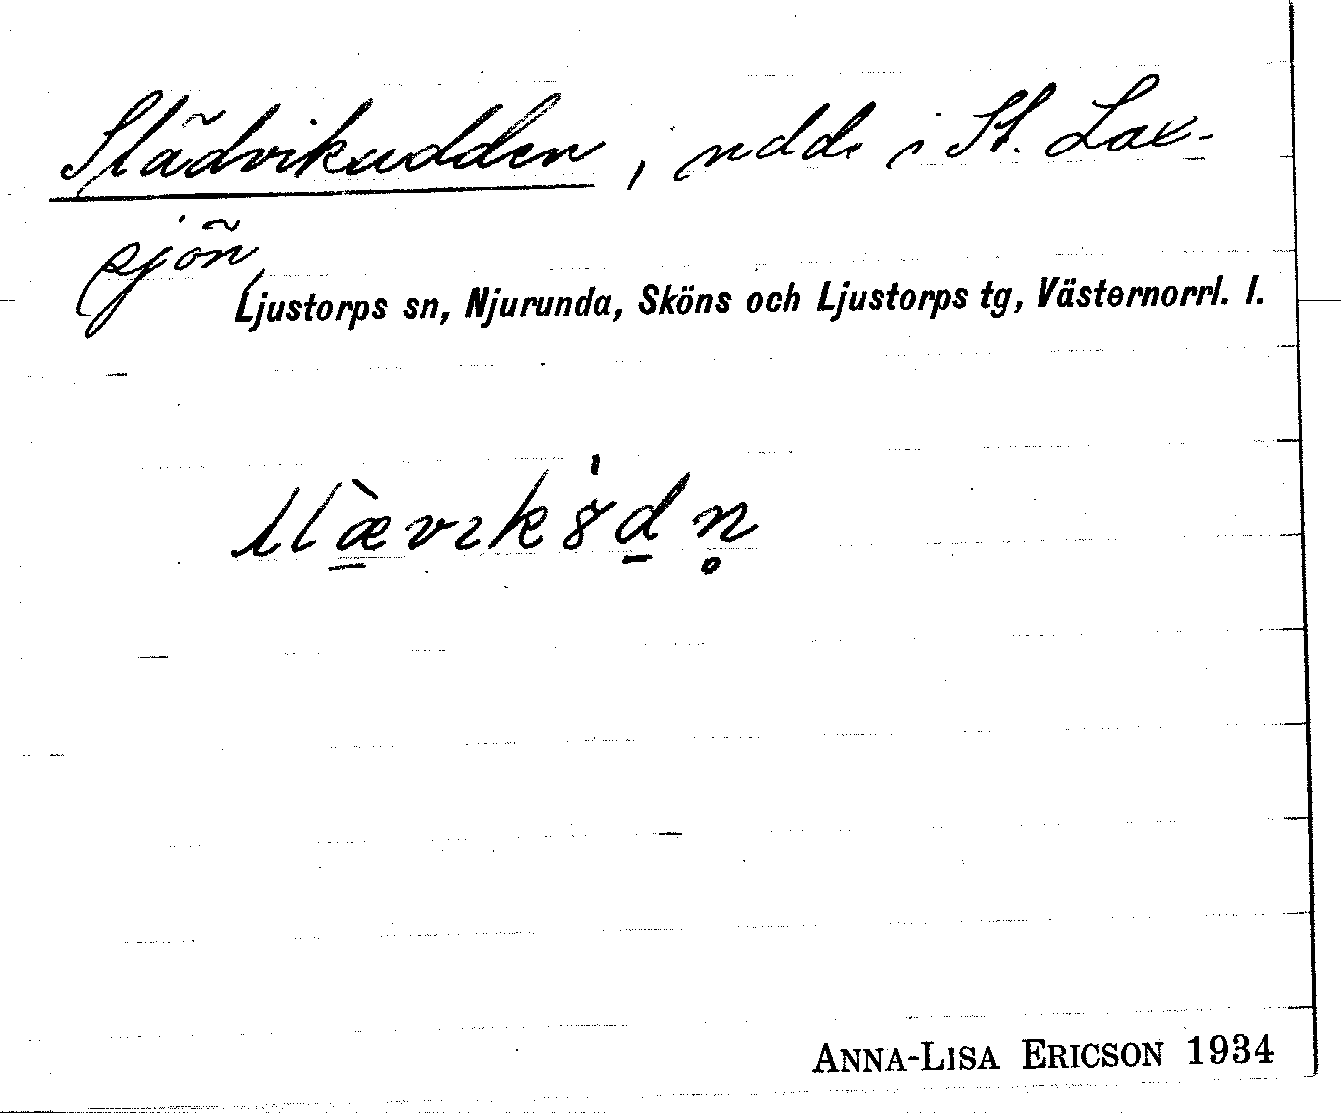 Slädvikudden, udde i St. Lax-
sjön,
Ljustorps sn, Njurunda, Sköns och Ljustorps tg, Västernorrl. l.
ANNA-LISA ERICSON 1934